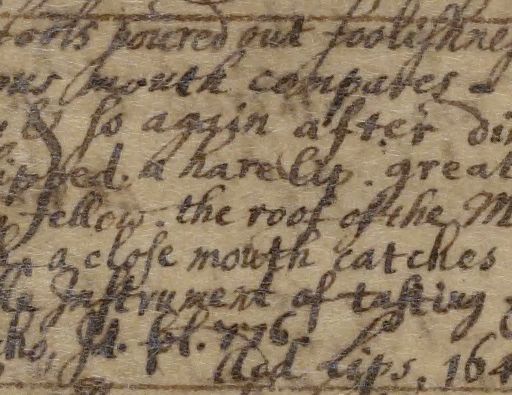 fools poured out foolishnes
ous mouth compares
& so again after din
ipped. a hare lip. great
fellow. the roof of the M
a close mouth catches
Instrument of tasting
Id. pl. 776
Red lips, 164